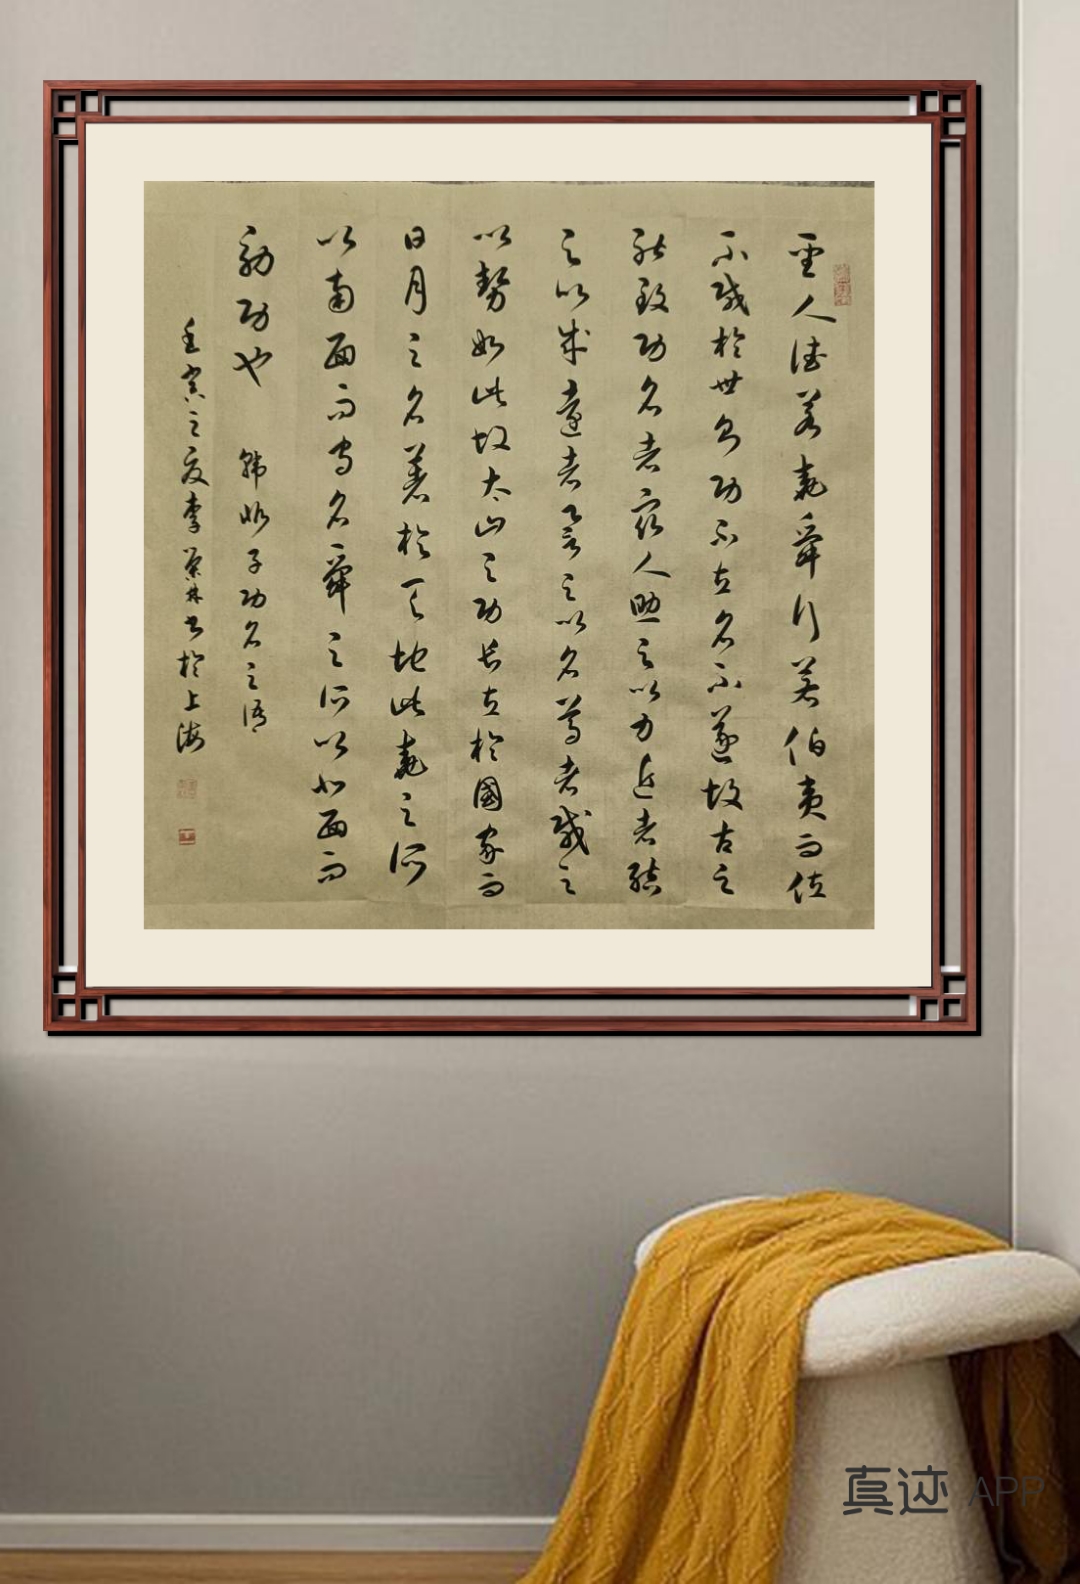 聖人德若堯舜行若伯夷而位
不載於世則功不立名不遂故古之
能致功名者眾人助之以力近者結
之以成遠者譽之以名尊者載之
以勢如此故太山之功長立於國家而
日月之名著於天地此堯之所
以南面而守名舜之所以北面而
効功也 韓非子功名之語
壬寅之夏李林書於上海
真迹 APP